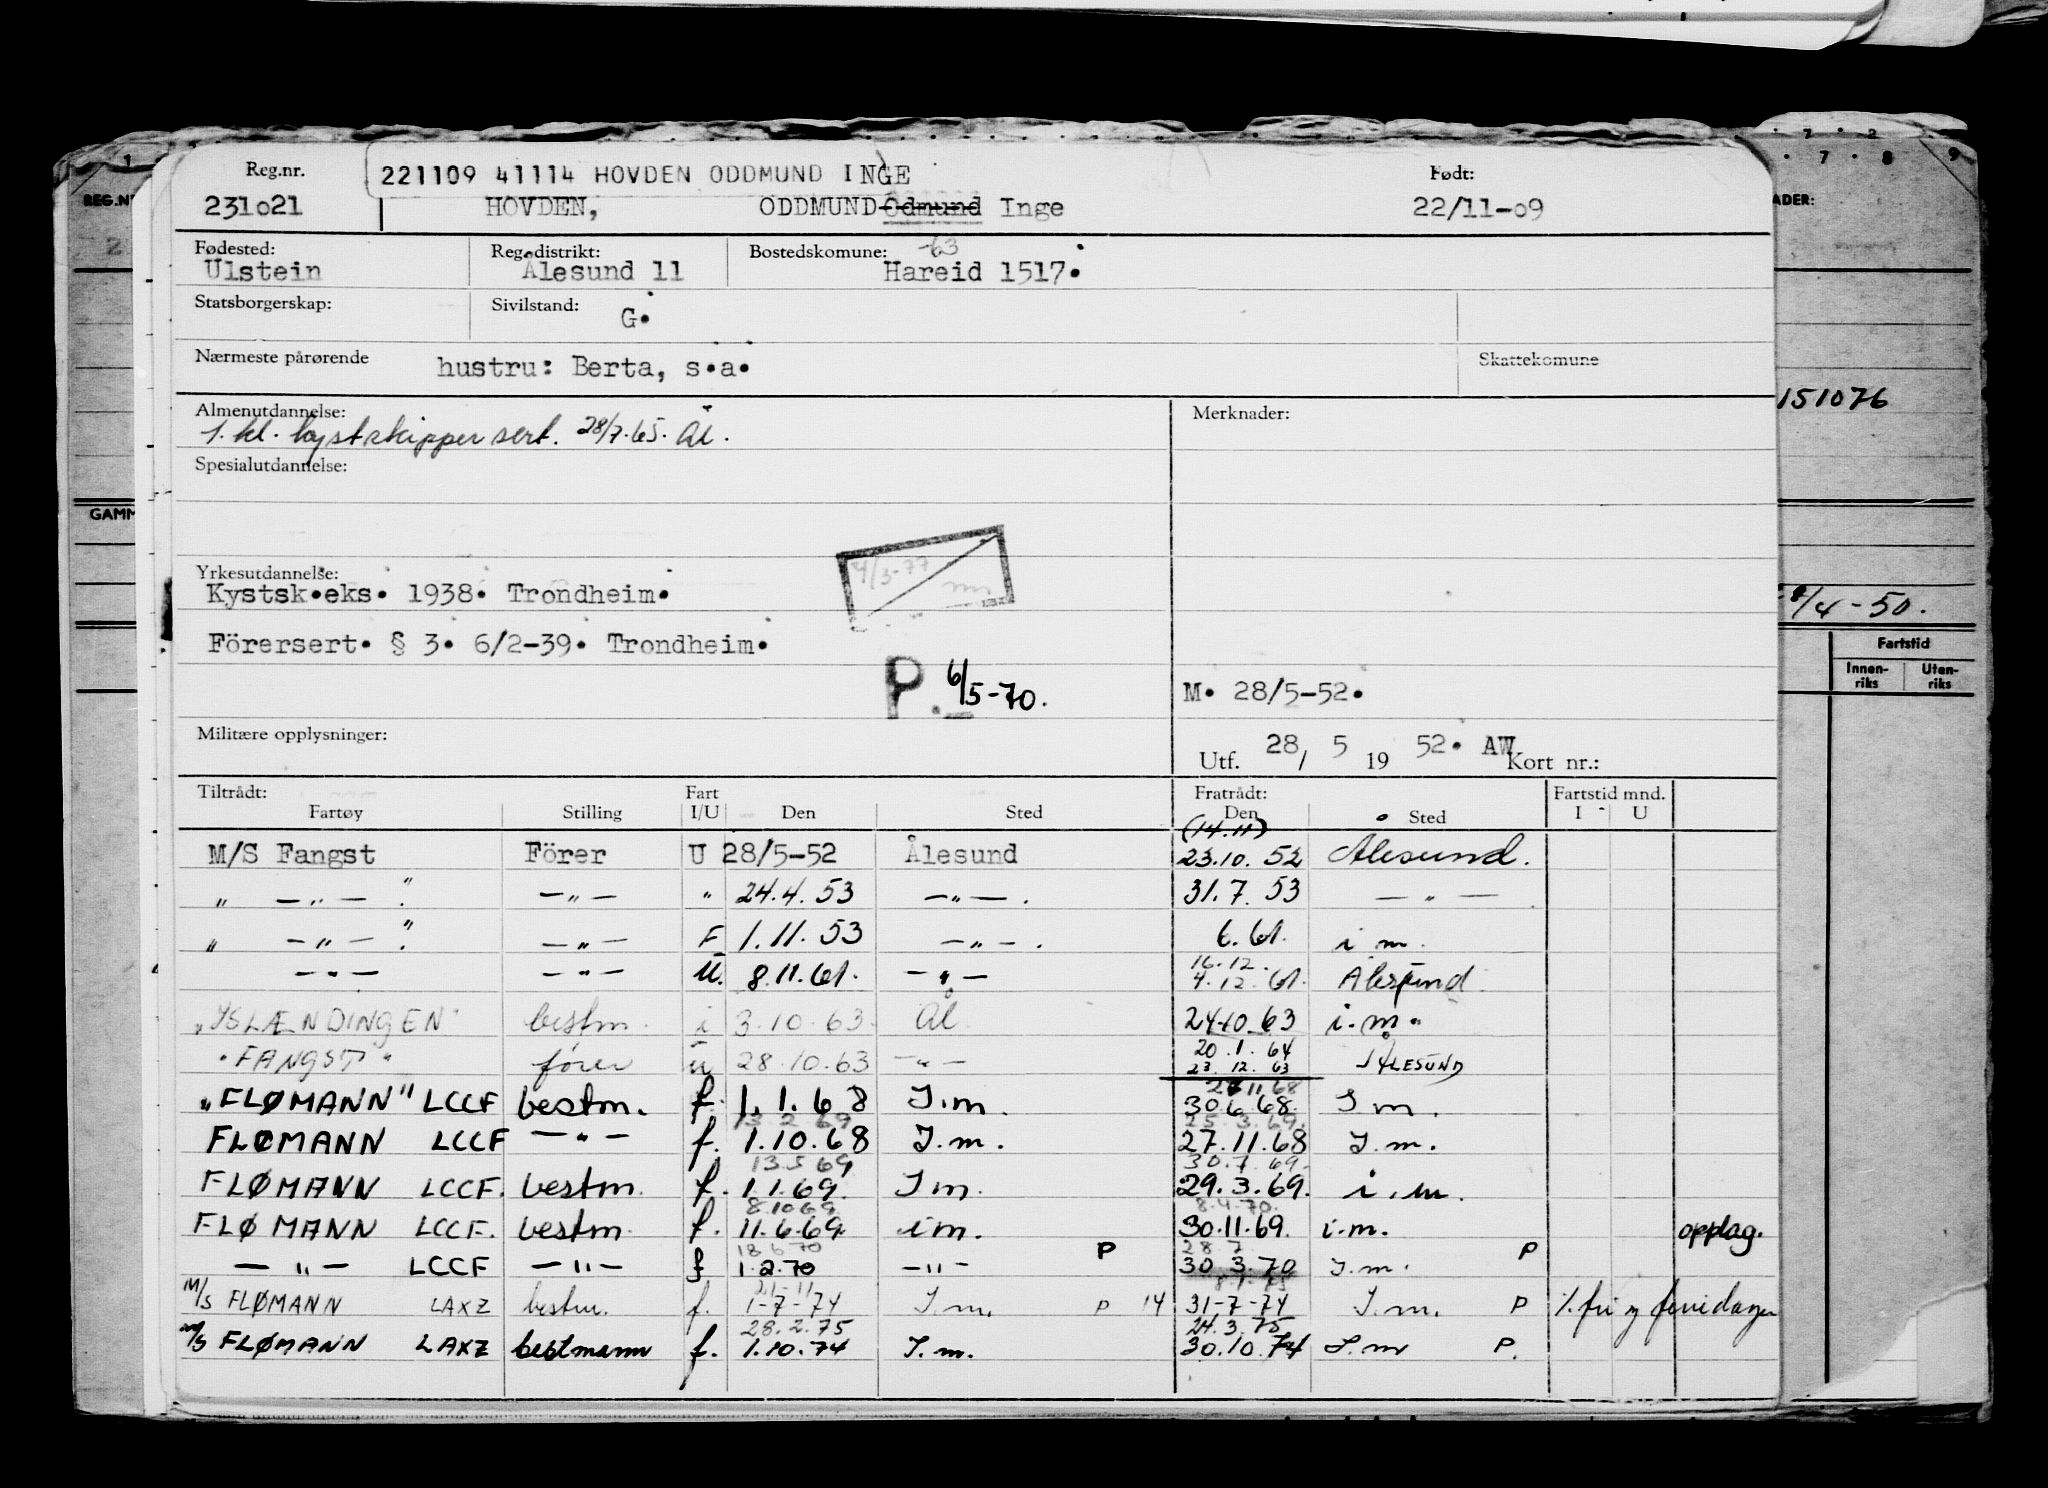 Reg.nr. 221109 41114 HOVDEN ODDMUND INGE Født:
231021 HOVDEN, ODDMUND Odmund Inge 22/11-09
Fødested: Reg.distrikt: Bostedskomune: -63
Ulstein Ålesund 11 Hareid 1517.
Statsborgerskap: Sivilstand: G.
Nærmeste pårørende hustru: Berta, s.a. Skattekomune
Almenutdannelse: Merknader:
1. kl. kystskippersert. 28/7.65. Ål.
Spesialutdannelse:
4/3-77
Yrkesutdannelse:
Kystsk.eks. 1938. Trondheim.
Förersert. § 3. 6/2-39. Trondheim.
P. 6/5-70.
M. 28/5-52.
Militære opplysninger:
Utf. 28 / 5 19 52. AW Kort nr.:
Tiltrådt: Fart Fratrådt: Fartstid mnd.
Fartøy Stilling I/U Den Sted Den Sted I U
(14.11)
M/S Fangst Förer U 28/5-52 Ålesund 23.10. 52 Ålesund.
" — " — " — " — " 24.4. 53 — " — . 31.7. 53 — " —
" — " — " — " — F 1.11. 53 — " — . 6.61. i m.
16.12.
— " — — " — U. 8.11.61. — " — 4.12.61. Ålesund.
"ISLÆNDINGEN" bestm. i 3.10.63. Ål 24.10.63 i.m.
20.1.64
"FANGST" fører u 28.10.63 — " — 23.12.63 ÅLESUND
"FLØMANN" LCCF bestm. f. 1.1.68 I.m. 30.6.68. I m.
13.2.69 25.3.69.
FLØMANN LCCF — " — f. 1.10.68 I.m. 27.11.68 I.m.
13.5 69 30.7.69.
FLØMANN LCCF. bestm. f. 1.1.69. I m. 29.3.69. i.m.
8.10 69 8.4.70.
FLØMANN LCCF. bestm. f. 11.6.69. i m. 30.11.69. i.m. opplag.
18 6 70 P 28 7 P
— " — LCCF — " — f 1.2.70 — " — 30 3.70 I.m.
M/S FLØMANN LAXZ bestm. f. 1-7-74 I.m. P 14 31-7-74 I.m. P
28.2.75 24.3.75
M/S FLØMANN LAXZ bestmann f. 1.10.74 I.m. 30.10.74 I.m P.
REG.N
GAMM
ADER:
151076
/4-50.
Fartstid
Innen-riks Uten-riks